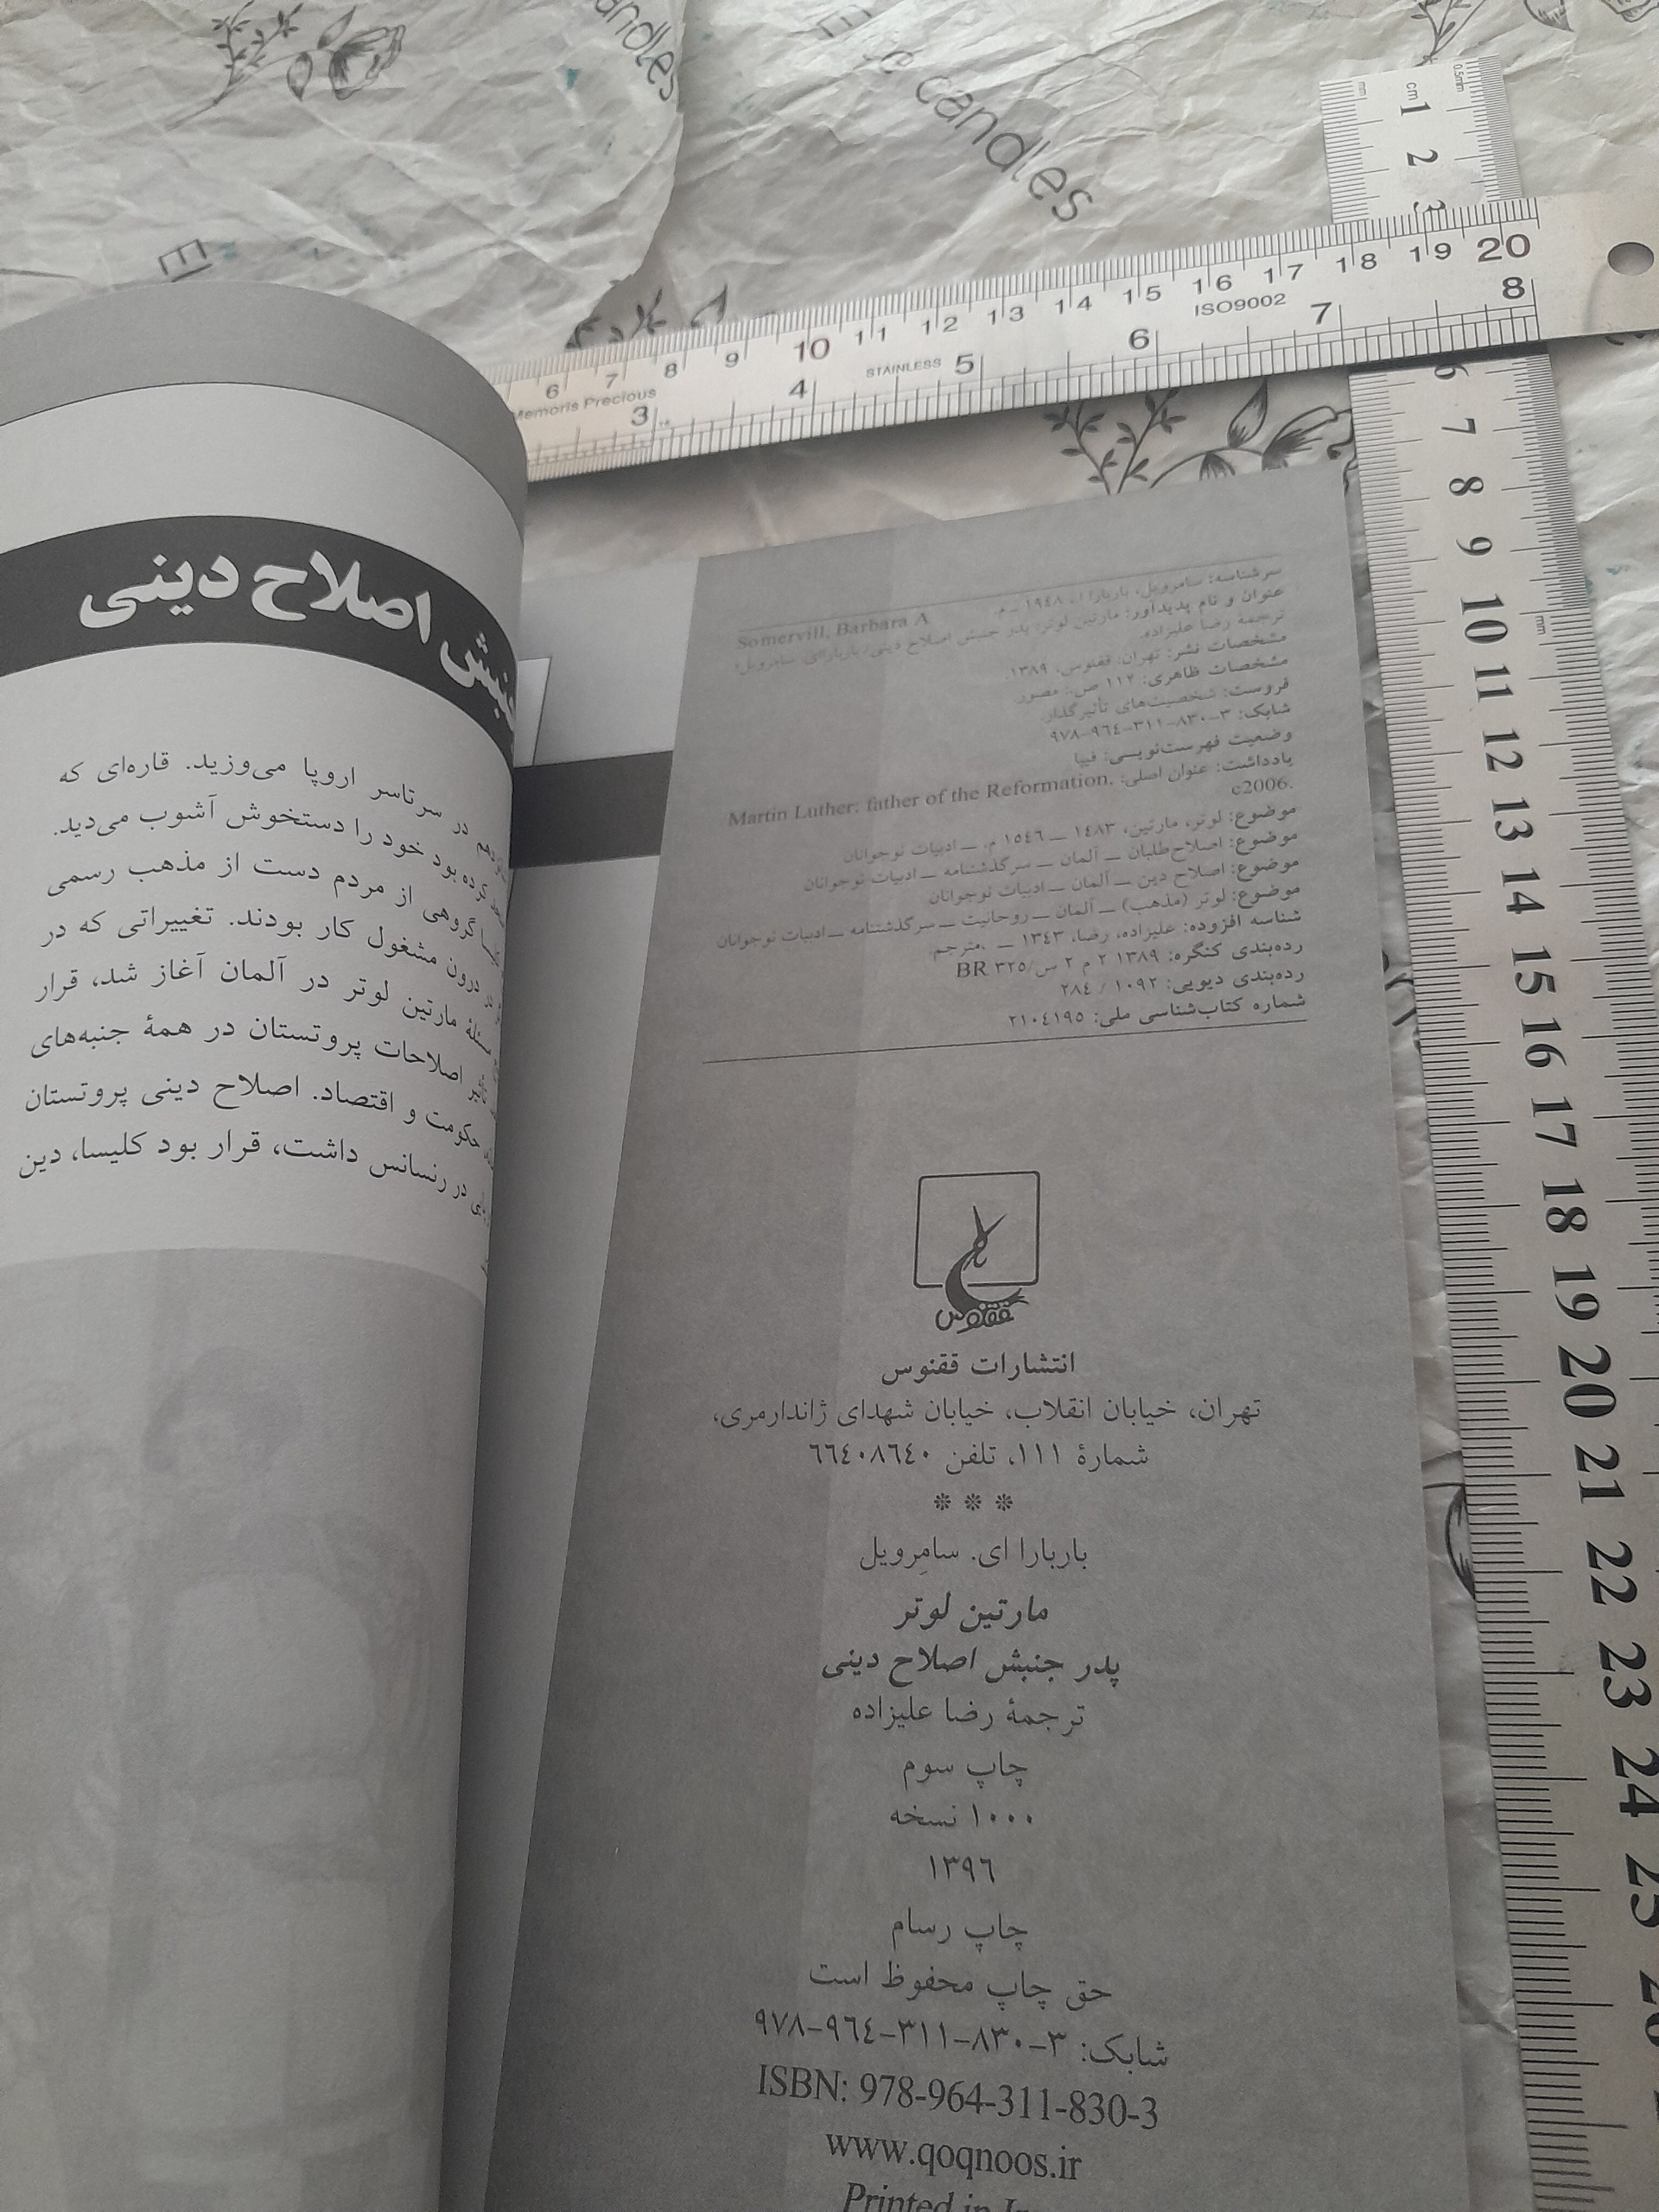 Elite candles
andles
cm 1 2 3
6 7 8 9 10 11 12 13 14 15 16 17 18 19 20 21 22 23 24 25
mm
0.5mm
6 7 8 9 10 11 12 13 14 15 16 17 18 19 20
Memoris Precious STAINLESS ISO9002
3 4 5 6 7 8
سرشناسه: سامرویل، باربارا ا.، ۱۹٤۸ ـ م.
Somervill, Barbara A
عنوان و نام پدیدآور: مارتین لوتر: پدر جنبش اصلاح دینی/ باربارا ای. سامرویل؛
ترجمهٔ رضا علیزاده.
مشخصات نشر: تهران: ققنوس، ۱۳۸۹.
مشخصات ظاهری: ۱۱۲ ص.: مصور.
فروست: شخصیت‌های تأثیرگذار.
شابک: ۳-۸۳۰-۳۱۱-۹٦٤-۹۷۸
وضعیت فهرست‌نویسی: فیپا
یادداشت: عنوان اصلی: Martin Luther: father of the Reformation.
c2006.
موضوع: لوتر، مارتین، ۱٤۸۳ ــ ۱٥٤٦ م. ــ ادبیات نوجوانان
موضوع: اصلاح‌طلبان ــ آلمان ــ سرگذشتنامه ــ ادبیات نوجوانان
موضوع: اصلاح دین ــ آلمان ــ ادبیات نوجوانان
موضوع: لوتر (مذهب) ــ آلمان ــ روحانیت ــ سرگذشتنامه ــ ادبیات نوجوانان
شناسه افزوده: علیزاده، رضا، ۱۳٤۳ ــ ، مترجم.
رده‌بندی کنگره: ۱۳۸۹ ۲ م ۲ س/۳۲٥ BR
رده‌بندی دیویی: ۱۰۹۲ / ۲۸٤
شماره کتاب‌شناسی ملی: ۲۱۰٤۱۹٥
ققنوس
انتشارات ققنوس
تهران، خیابان انقلاب، خیابان شهدای ژاندارمری،
شمارهٔ ۱۱۱، تلفن ٦٦٤۰۸٦٤۰
* * *
باربارا ای. سامِرویل
مارتین لوتر
پدر جنبش اصلاح دینی
ترجمهٔ رضا علیزاده
چاپ سوم
۱۰۰۰ نسخه
۱۳۹٦
چاپ رسام
حق چاپ محفوظ است
شابک: ۳-۸۳۰-۳۱۱-۹٦٤-۹۷۸
ISBN: 978-964-311-830-3
www.qoqnoos.ir
Printed in
جنبش اصلاح دینی
در سرتاسر اروپا می‌وزید. قاره‌ای که
کرده بود خود را دستخوش آشوب می‌دید.
گروهی از مردم دست از مذهب رسمی
در درون مشغول کار بودند. تغییراتی که در
مسئلهٔ مارتین لوتر در آلمان آغاز شد، قرار
تأثیر اصلاحات پروتستان در همهٔ جنبه‌های
حکومت و اقتصاد. اصلاح دینی پروتستان
در رنسانس داشت، قرار بود کلیسا، دین